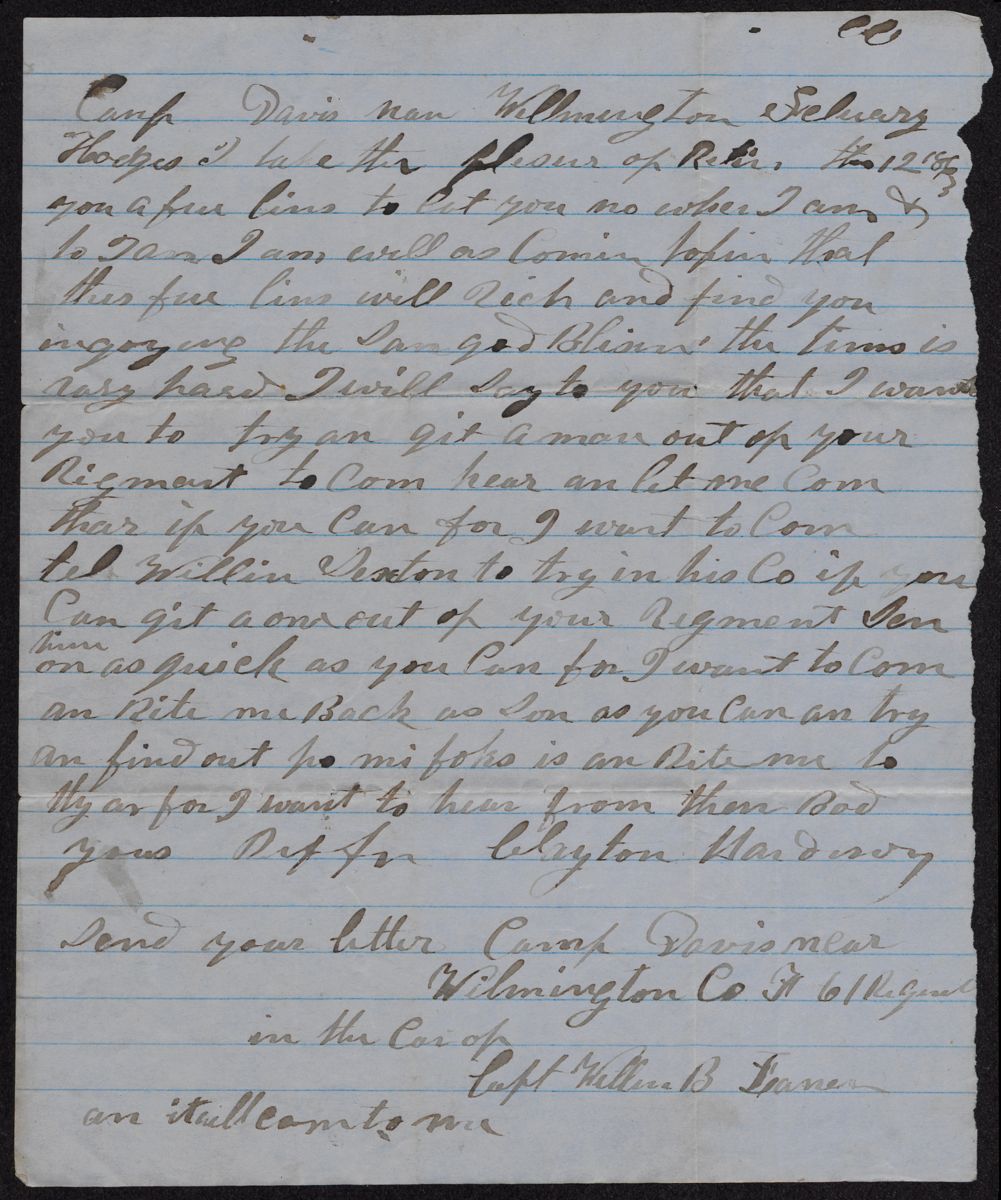 Camp Davis near Willmington Febuary
Hodges I take the plesur of Ritin the 12 1863
you a fue lins to let you no wher I am &
ho I am I am well as Comin hopin that
thes fue lins will Rich and find you
ingoying the Sam god Blisin the tims is
vary hard I will Say to you that I want
you to try an git a man out of your
Rigment to Com hear an let me Com
thar if you Can for I want to Com
tel Willim Sexton to try in his Co if you
Can git a one out of your Rigment Sen
him
on as quick as you Can for I want to Com
an Rite me Back as Son as you Can an try
an find out ho mi foks is an Rite me ho
thy ar for I want to hear from them Bad
yous Clayton Hardewy
Send your letter Camp Davis near
Wilmington Co H 61 Regment
in the Car of
Capt Willim B Lanes
an it will com to me